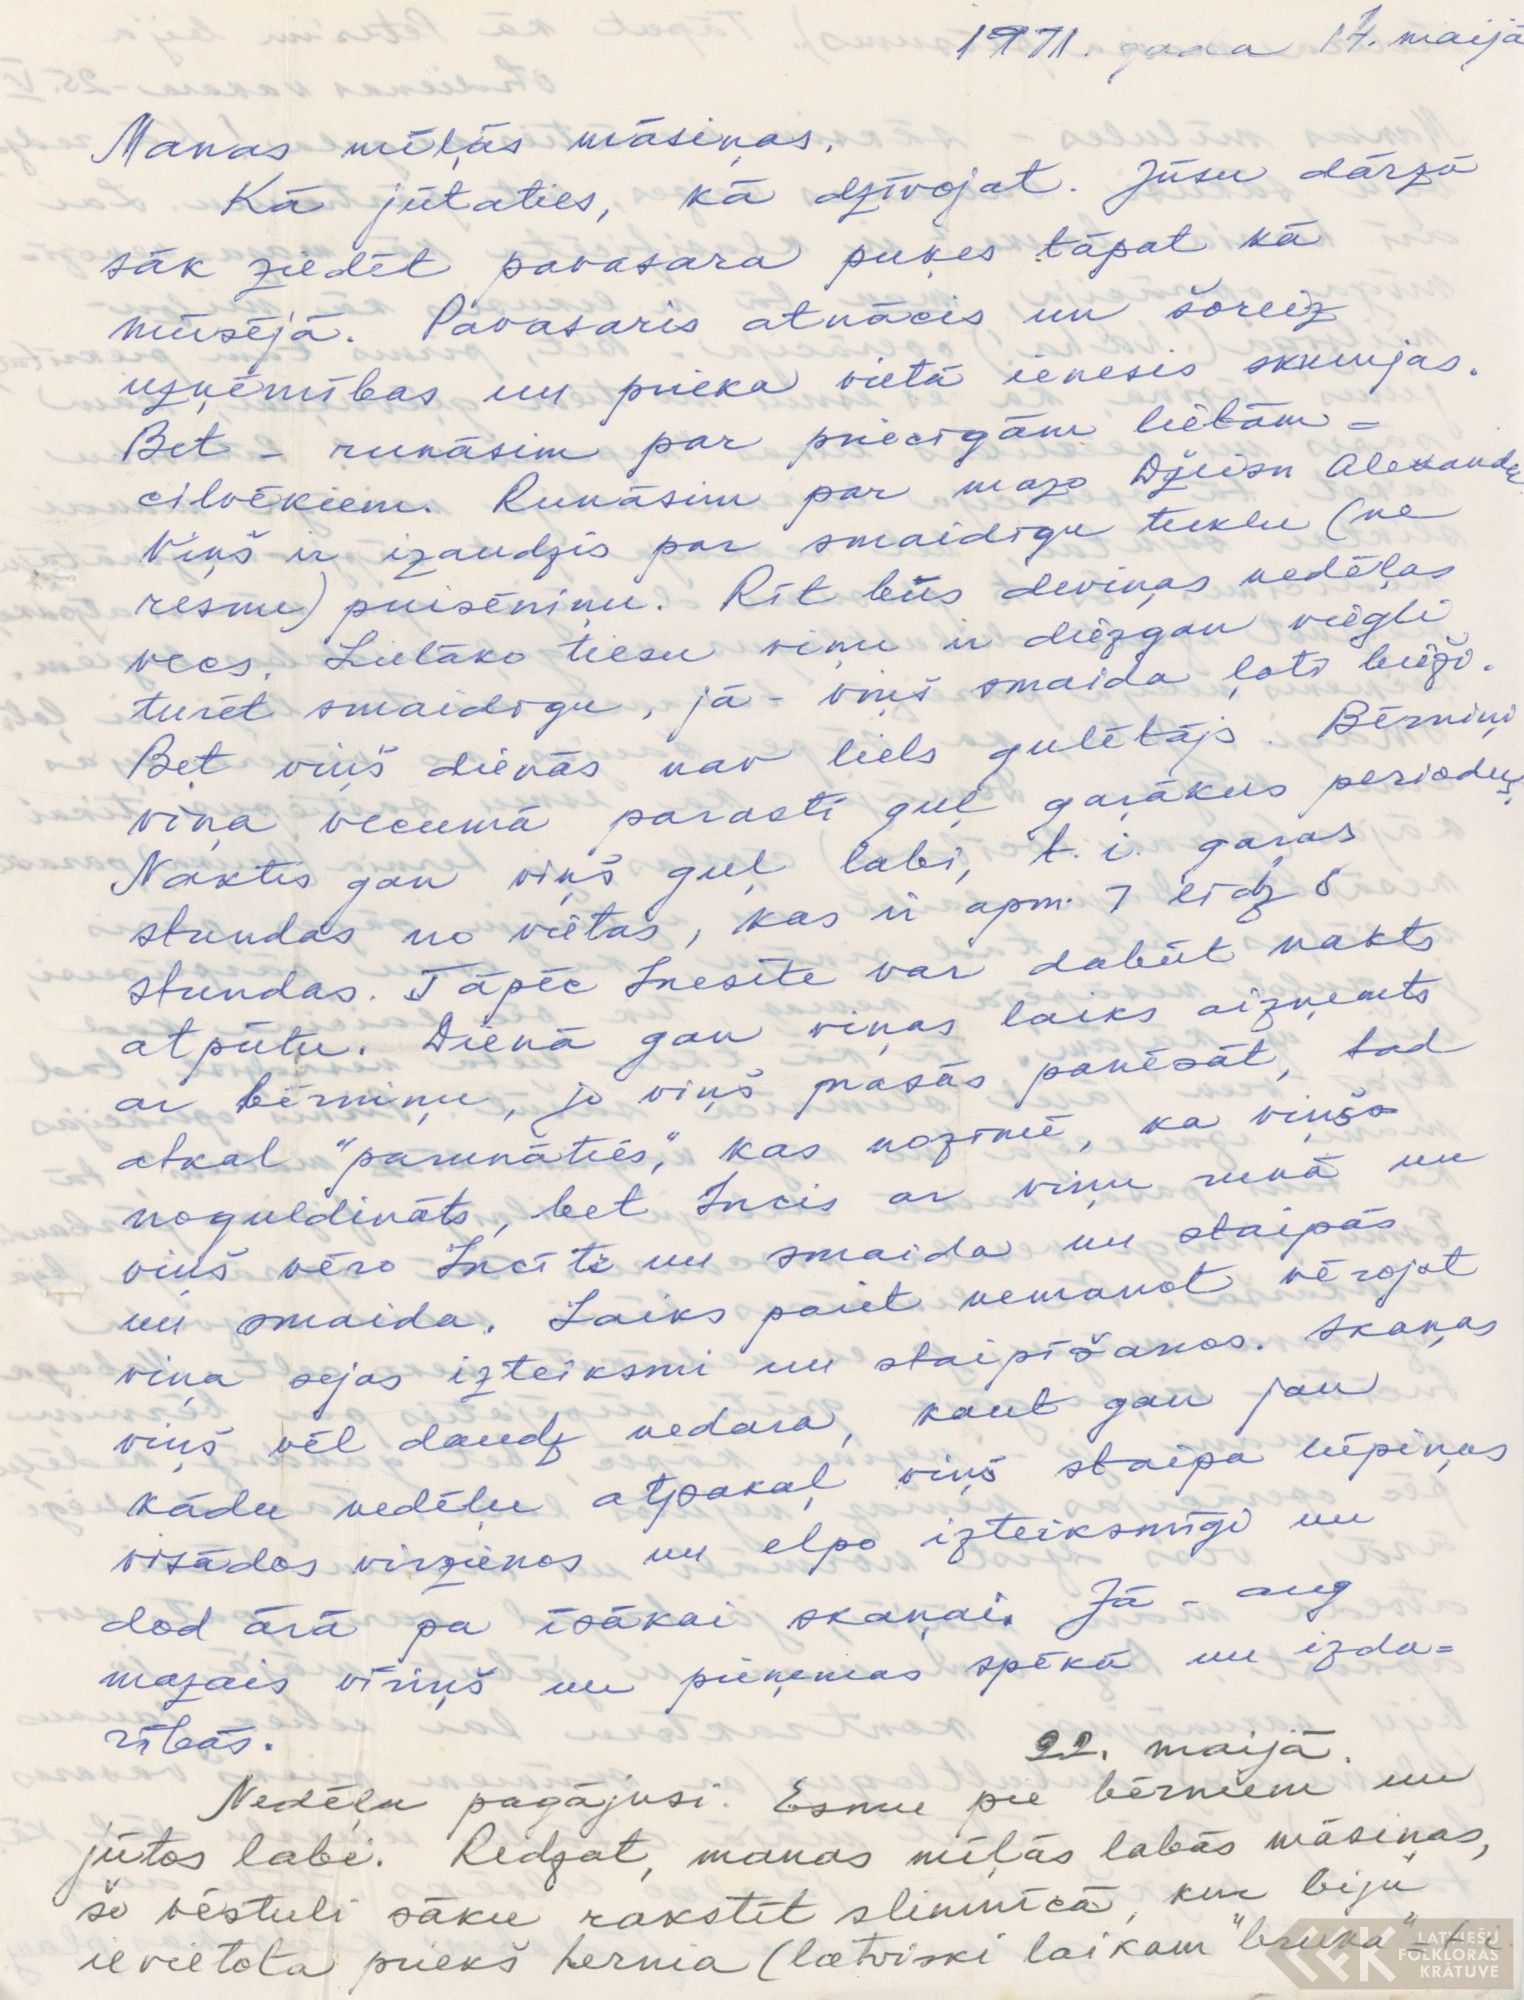 1971. gada 17. maijā
Manas mīļās māsiņas,
Kā jūtaties, kā dzīvojat. Jūsu dārzā
sāk ziedēt pavasara puķes tāpat kā
mūsējā. Pavasaris atnācis un šoreiz
uzņēmības un prieka vietā ienesis skumjas.
Bet - runāsim par priecīgām lietām =
cilvēkiem. Runāsim par mazo Džeisn Alexander.
Viņš ir izaudzis par smaidīgu tuklu (ne
resnu) puisēniņu. Rīt būs deviņas nedēļas
vecs. Lielāko tiesu viņu ir diezgan viegli
turēt smaidīgu, jā - viņš smaida ļoti bieži.
Bet viņš dienās nav liels gulētājs. Bērniņi
viņa vecumā parasti guļ garākus periodus.
Naktīs gan viņš guļ labi, t.i. garas
stundas no vietas, kas ir apm. 7 līdz 8
stundas. Tāpēc Inesīte var dabūt nakts
atpūtu. Dienā gan viņas laiks aizņemts
ar bērniņu, jo viņš prasās panēsāt, tad
atkal "parunāties," kas nozīmē, ka viņš
noguldināts, bet Incis ar viņu runā un
viņš vēro Incīti un smaida un staipās
un smaida. Laiks paiet nemanot vērojot
viņa sejas izteiksmi un staipīšanos. Skaņas
viņš vēl daudz nedara, kaut gan jau
kādu nedēļu atpakaļ viņš staipa lūpiņas
visādos virzienos un elpo izteiksmīgi un
dod ārā pa īsākai skaņai. Jā - aug
mazais vīriņš un pieņemas spēkā un izda=
rībās.
22. maijā.
Nedēļu pagājusi. Esmu pie bērniem un
jūtos labi. Redzat, manas mīļās labās māsiņas,
šo vēstuli sāku rakstīt slimnīcā, kur biju
ievietota priekš hernia (latviski laikam "bruka" -
LATVIEŠU
FOLKLORAS
KRĀTUVE